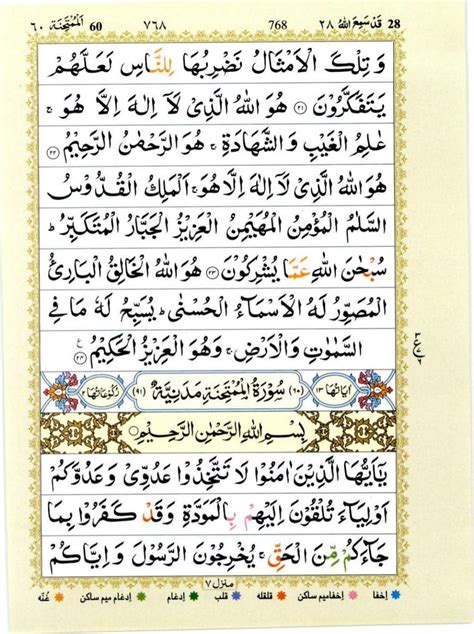 28 قَدْ سَمِعَ اللهُ ٢٨ 768 ٧٦٨ 60 اَلْمُمْتَحِنَة ٦٠
وَ تِلْكَ الْاَمْثَالُ نَضْرِبُهَا لِلنَّاسِ لَعَلَّهُمْ
يَتَفَكَّرُوْنَ ﴿٢١﴾ هُوَ اللهُ الَّذِىْ لَاۤ اِلٰهَ اِلَّا هُوَ ۚ
عٰلِمُ الْغَيْبِ وَ الشَّهَادَةِ ۚ هُوَ الرَّحْمٰنُ الرَّحِيْمُ ﴿٢٢﴾
هُوَ اللهُ الَّذِىْ لَاۤ اِلٰهَ اِلَّا هُوَ ۚ اَلْمَلِكُ الْقُدُّوْسُ
السَّلٰمُ الْمُؤْمِنُ الْمُهَيْمِنُ الْعَزِيْزُ الْجَبَّارُ الْمُتَكَبِّرُ ؕ
سُبْحٰنَ اللهِ عَمَّا يُشْرِكُوْنَ ﴿٢٣﴾ هُوَ اللهُ الْخَالِقُ الْبَارِئُ
الْمُصَوِّرُ لَهُ الْاَسْمَآءُ الْحُسْنٰى ؕ يُسَبِّحُ لَهٗ مَا فِى
السَّمٰوٰتِ وَ الْاَرْضِ ۚ وَهُوَ الْعَزِيْزُ الْحَكِيْمُ ﴿٢٤﴾
اٰيَاتُهَا ١٣ (٦٠) سُوْرَةُ الْمُمْتَحِنَةِ مَدَنِيَّةٌ (٩١) رُكُوْعَاتُهَا
بِسْمِ اللهِ الرَّحْمٰنِ الرَّحِيْمِ
يٰۤاَيُّهَا الَّذِيْنَ اٰمَنُوْا لَا تَتَّخِذُوْا عَدُوِّىْ وَ عَدُوَّكُمْ
اَوْلِيَآءَ تُلْقُوْنَ اِلَيْهِمْ بِالْمَوَدَّةِ وَ قَدْ كَفَرُوْا بِمَا
جَآءَكُمْ مِّنَ الْحَقِّ ۚ يُخْرِجُوْنَ الرَّسُوْلَ وَ اِيَّاكُمْ
منزل ٧
اخفا اخفامیم ساکن قلقله قلب ادغام ادغام میم ساکن غُنّه